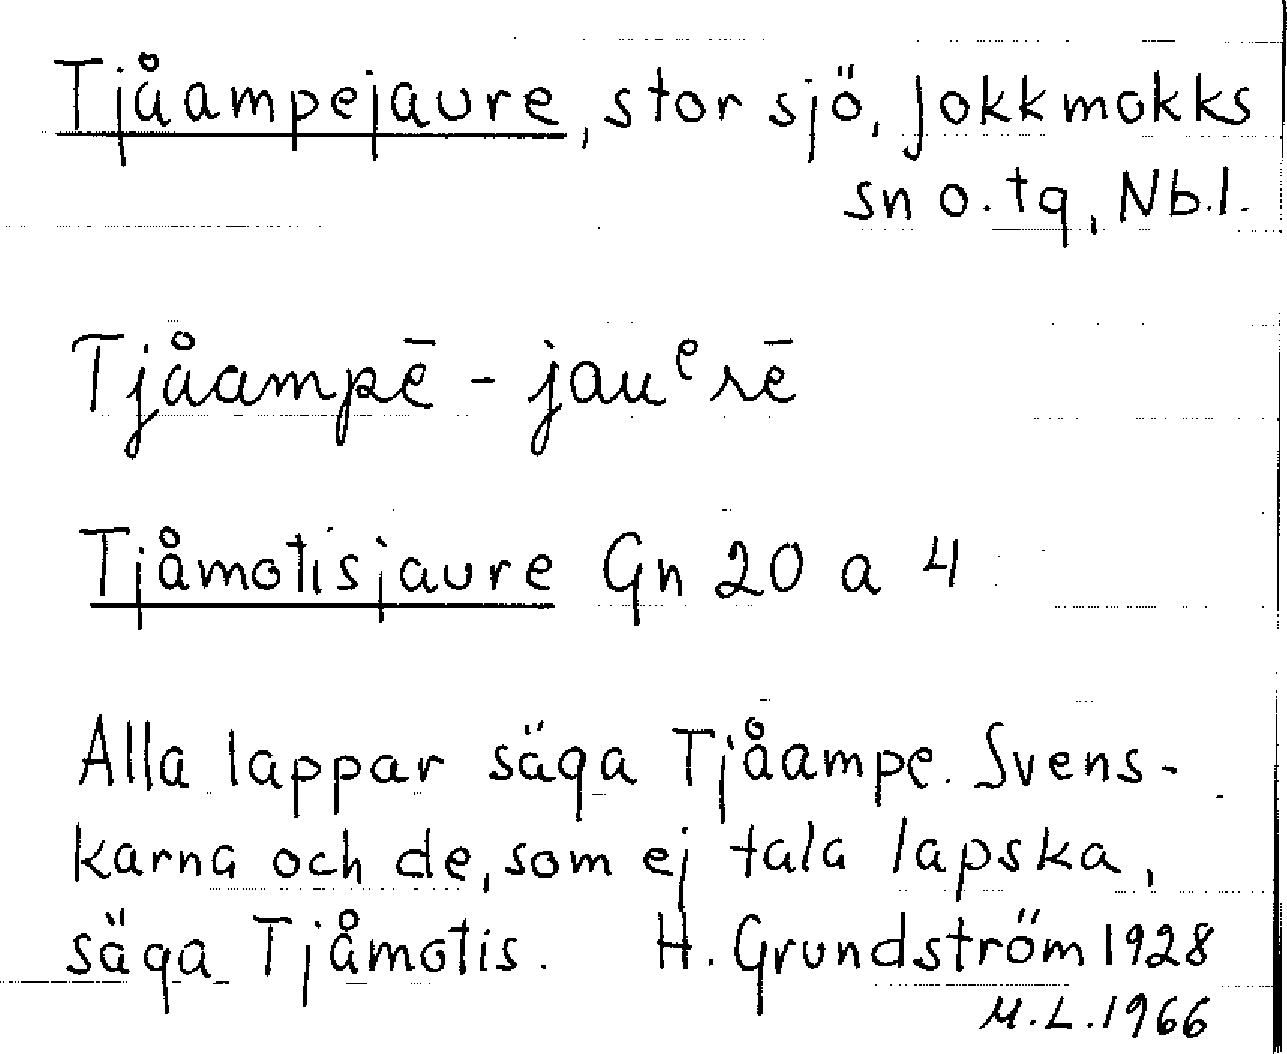 Tjåampejaure, stor sjö, Jokkmokks
sn o. tg, Nb.l.
Tjåampē - jauᵉrē
Tjåmotisjaure Gn 20 a 4
Alla lappar säga Tjåampe. Svens-
karna och de, som ej tala lapska,
säga Tjåmotis. H. Grundström 1928
M.L. 1966